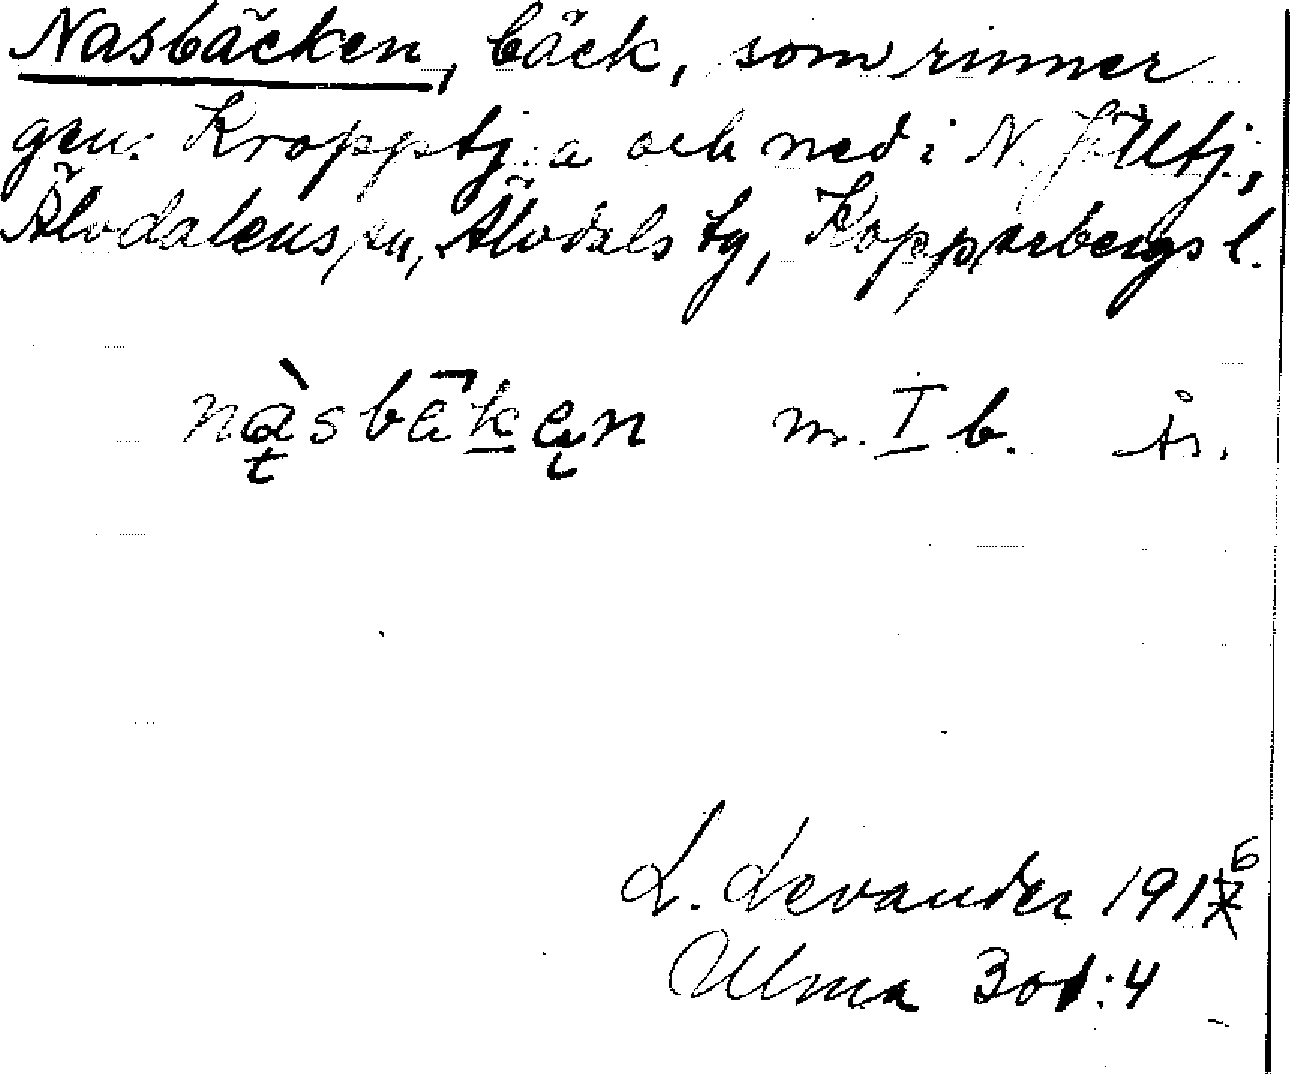 Nasbäcken, bäck, som rinner
gen. Kropptj.a och ned i N.
Älvdalens sn, Älvdals tg, Kopparbergs l.
nàsbäken m. I b. ås.
L. Levander 1916
Ulma 301:4